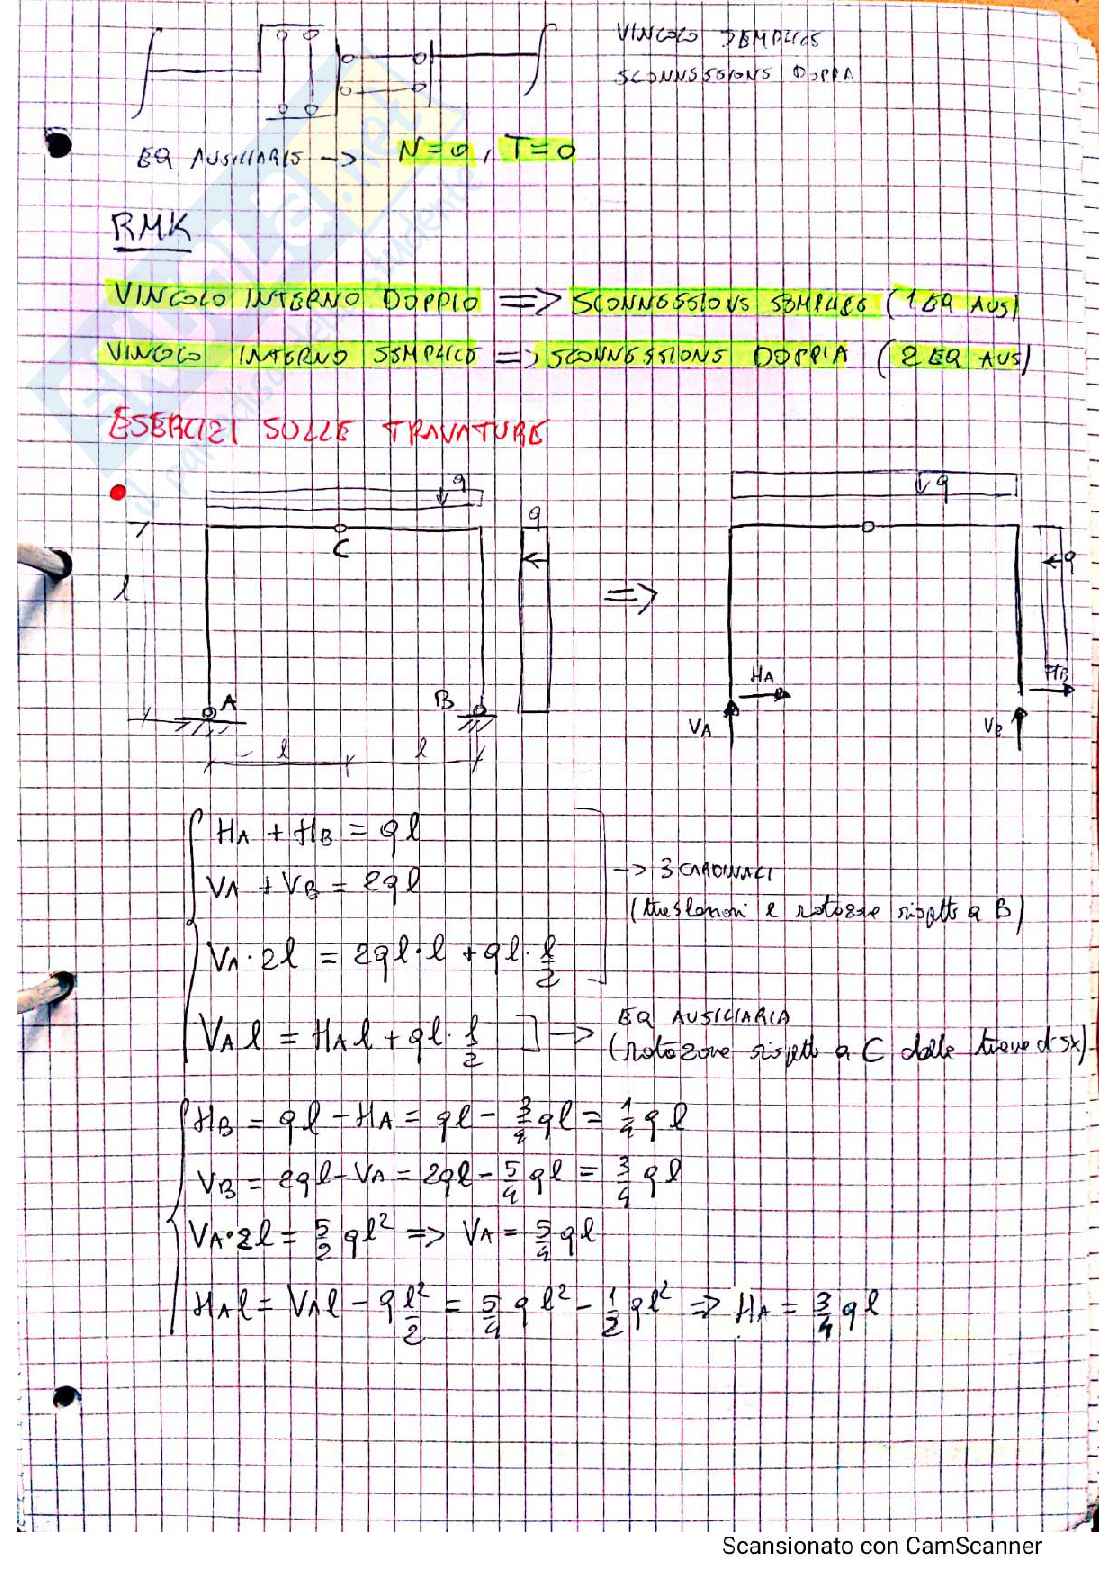 VINCOLO SEMPLICE
SCONNESSIONE DOPPIA
EQ AUSILIARIE -> N=0, T=0
RMK
VINCOLO INTERNO DOPPIO => SCONNESSIONE SEMPLICE (1 EQ AUS)
VINCOLO INTERNO SEMPLICE => SCONNESSIONE DOPPIA (2 EQ AUS)
ESERCIZI SULLE TRAVATURE
q
q
q
C
l
=>
q
A
B
HA
HB
VA
VB
l
l
HA + HB = ql
VA + VB = 2ql
-> 3 CARDINALI
(traslazioni e rotazione rispetto a B)
VA·2l = 2ql·l + ql·l/2
VA l = HA l + ql·l/2
-> EQ AUSILIARIA
(rotazione rispetto a C della trave di sx)
HB = ql - HA = ql - 3/4 ql = 1/4 ql
VB = 2ql - VA = 2ql - 5/4 ql = 3/4 ql
VA·2l = 5/2 ql² => VA = 5/4 ql
HA l = VA l - q l²/2 = 5/4 ql² - 1/2 ql² => HA = 3/4 ql
Scansionato con CamScanner